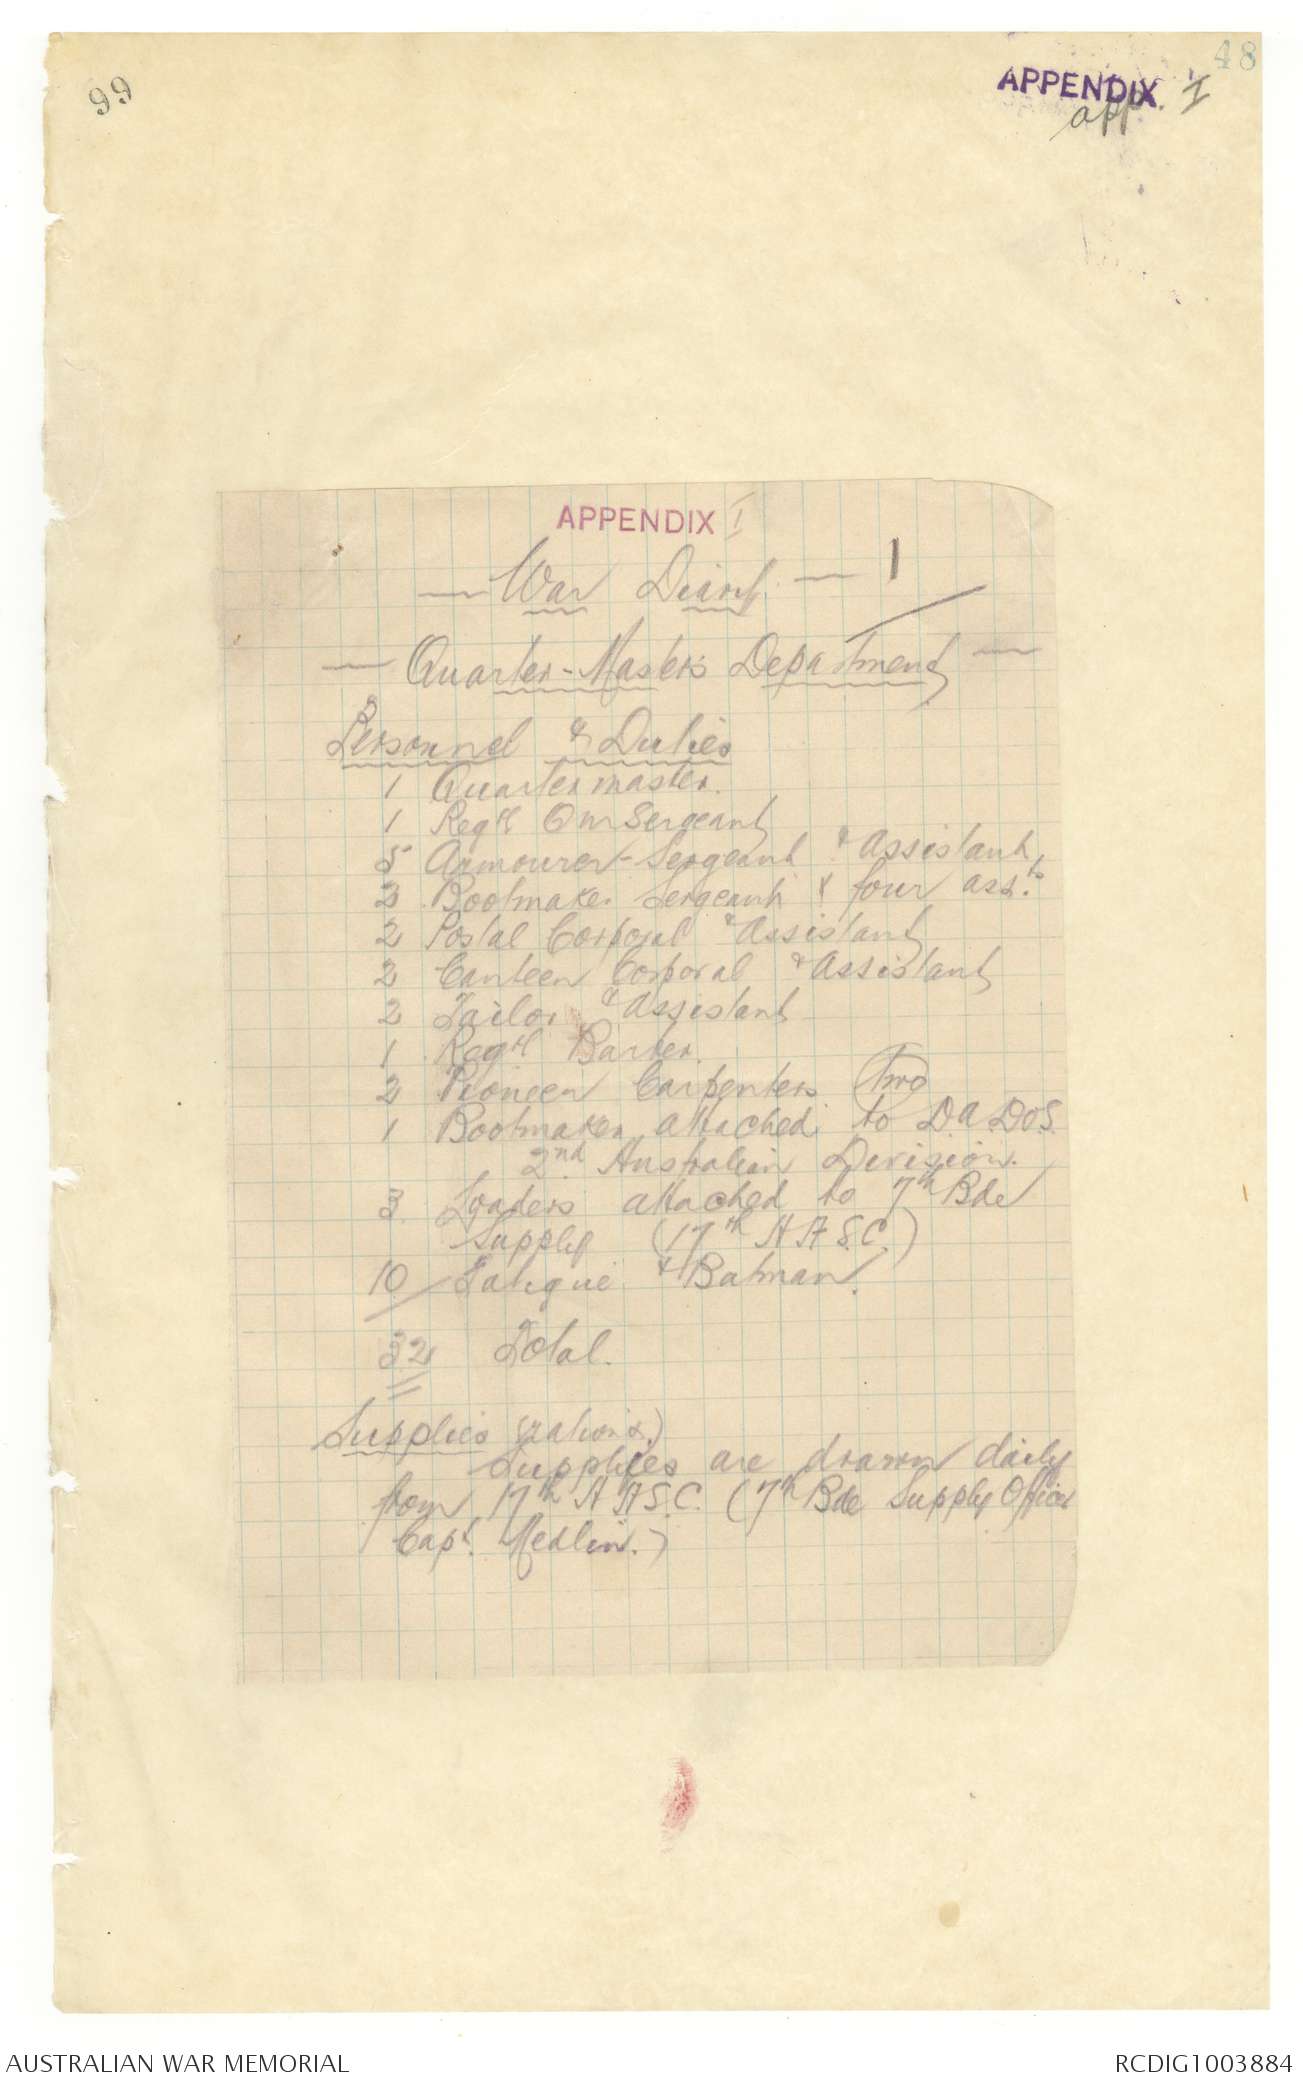 99
48
APPENDIX I
app.
APPENDIX I
— War Diary. — 1
— Quarter-Master's Department —
Personnel & Duties
1 Quartermaster.
1 Reg'l Qm Sergeant
5 Armourer-Sergeant & Assistant
2 Bootmaker Sergeant & four ass.ts
2 Postal Corporal & Assistant
2 Canteen Corporal & Assistant
2 Tailor & Assistant
1 Reg'l Barber.
2 Pioneer Carpenters (two)
1 Bootmaker attached to D.A.D.O.S.
2nd Australian Division.
3 Loaders attached to 7th Bde
Supply (17th A A S.C.)
10 Fatigue & Batman.
32 Total.
Supplies (rations.)
Supplies are drawn daily
from 17th A A S.C. (7th Bde Supply Officer
Capt. Medlin.)
AUSTRALIAN WAR MEMORIAL
RCDIG1003884